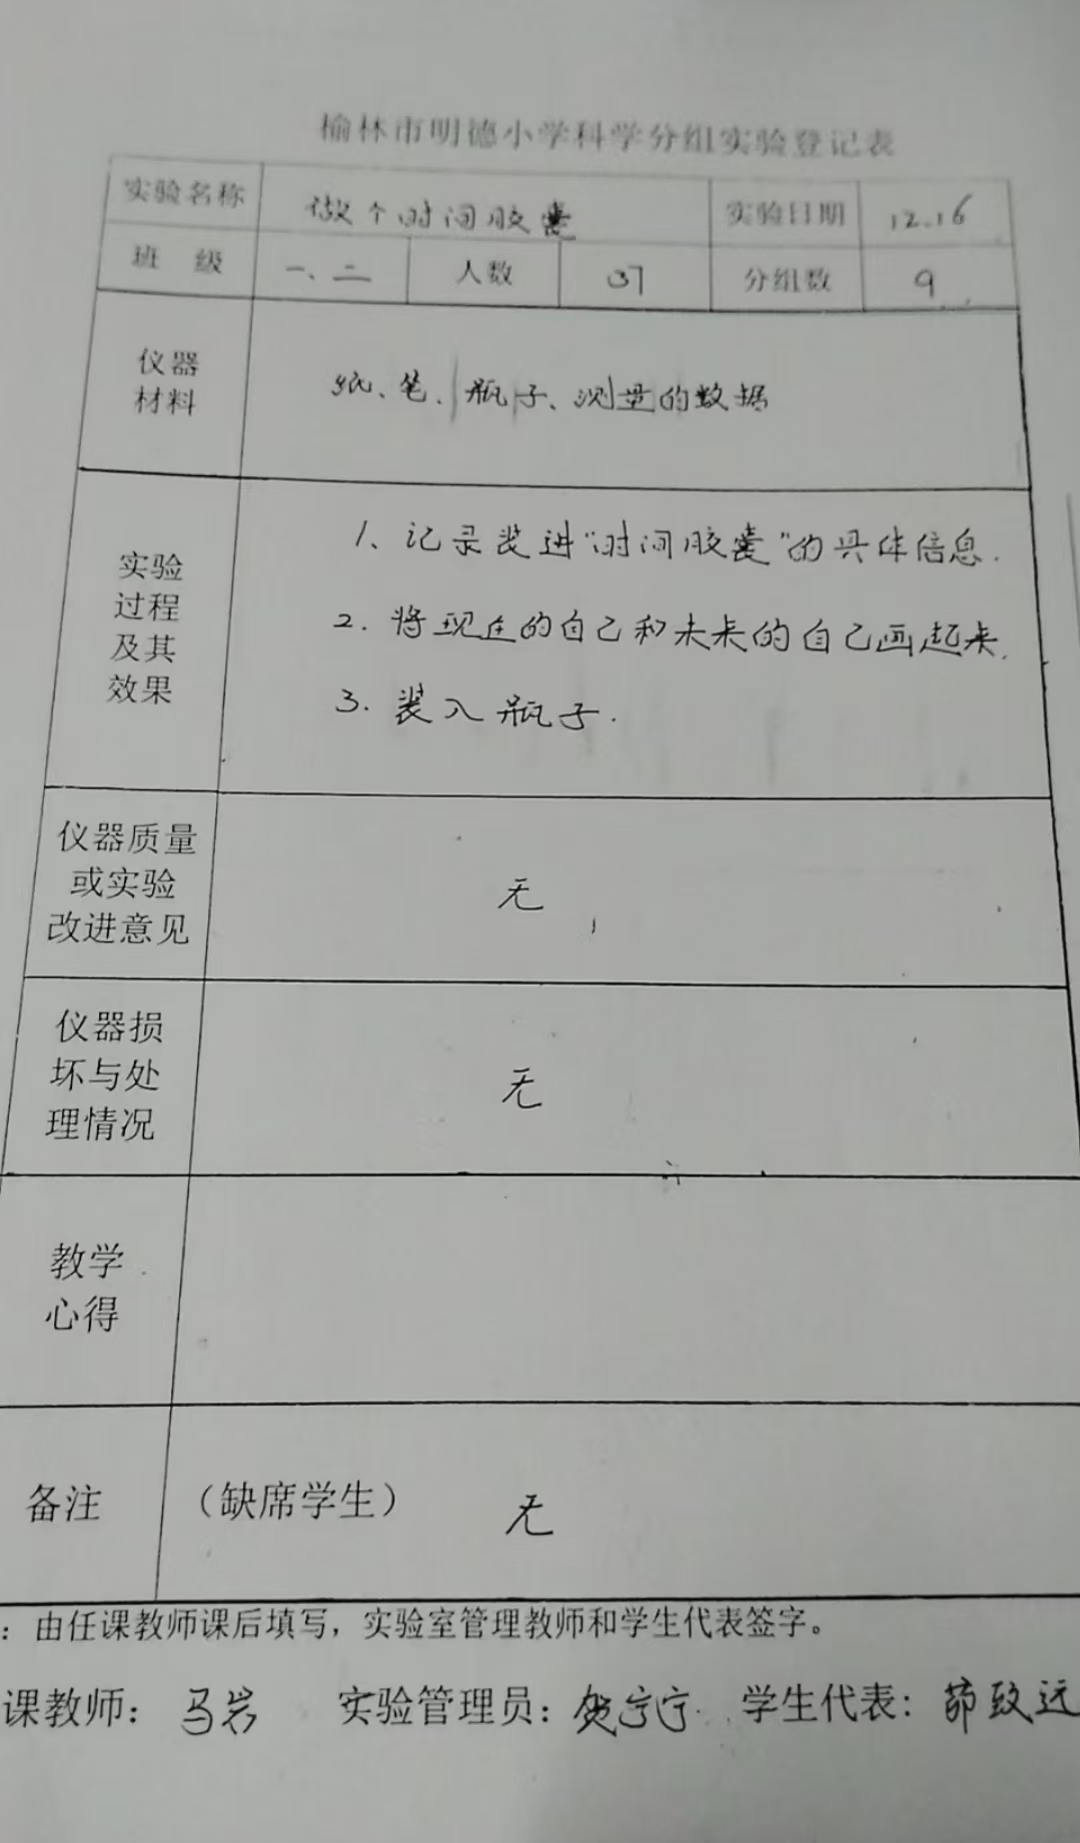 榆林市明德小学科学分组实验登记表
实验名称 做个时间胶囊 实验日期 12.16
班 级 一、二 人数 37 分组数 9
仪器
材料
纸、笔、瓶子、测量的数据
实验
过程
及其
效果
1、记录装进“时间胶囊”的具体信息.
2. 将现在的自己和未来的自己画起来.
3. 装入瓶子.
仪器质量
或实验
改进意见
无
仪器损
坏与处
理情况
无
教学
心得
备注 （缺席学生） 无
：由任课教师课后填写，实验室管理教师和学生代表签字。
课教师： 马岩 实验管理员：贺宁宁 学生代表：茆致远